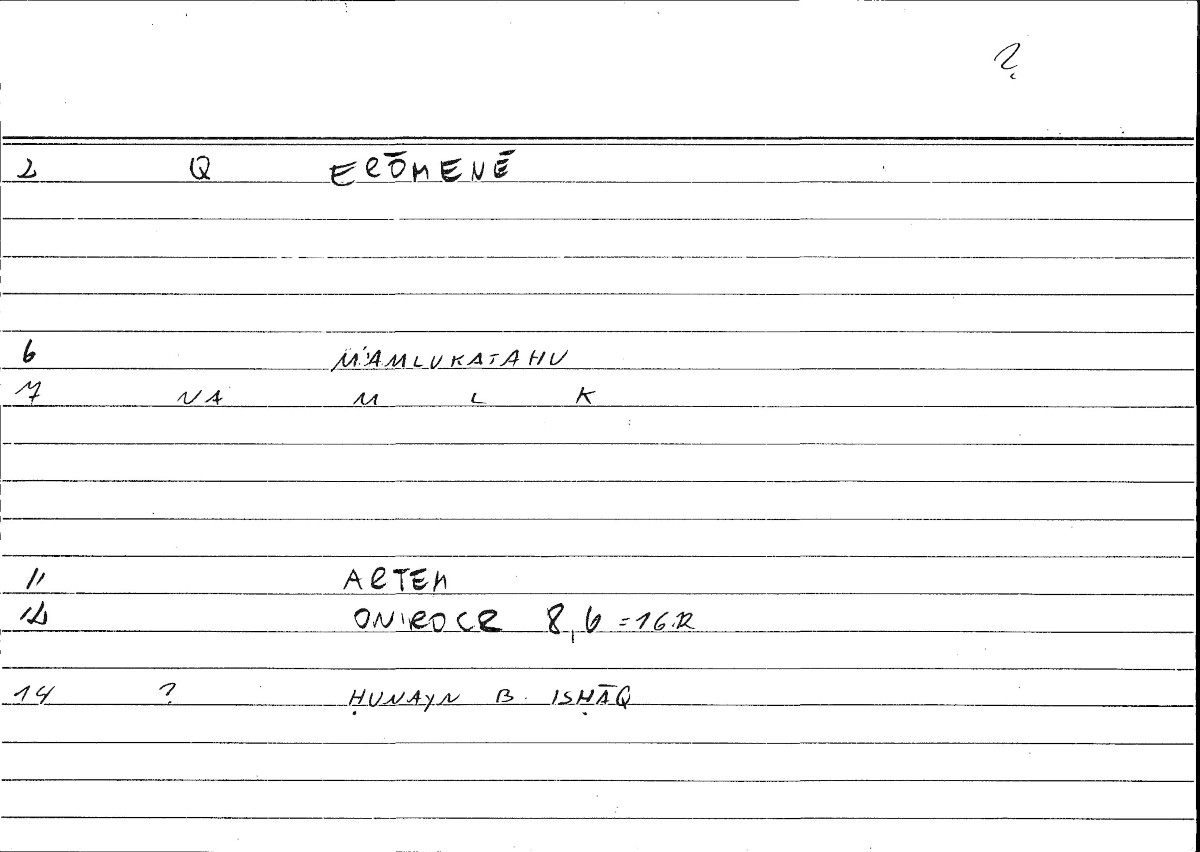 ?
2 Q ERŌMENĒ
6 MAMLUKATAHU
7 NA M L K
11 ARTEM
12 ONIROCR 8,6 =16.12
14 ? ḤUNAYN B. ISḤĀQ